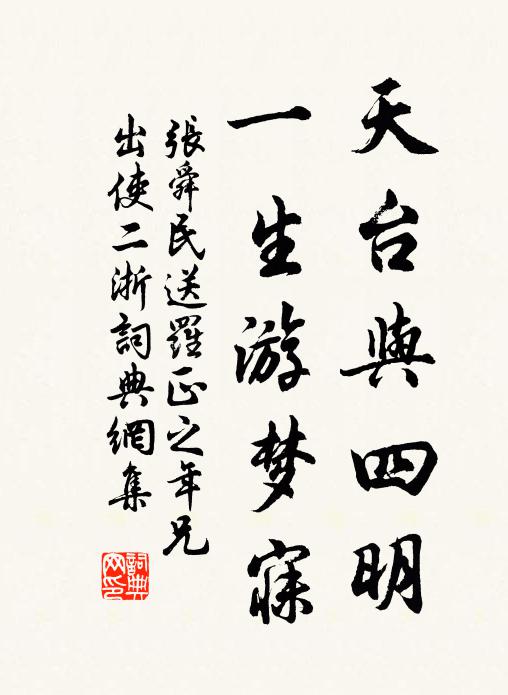 天台與四明
一生游梦寐
張舜民送羅正之年兄
出使二浙詞典網集
詞典网印